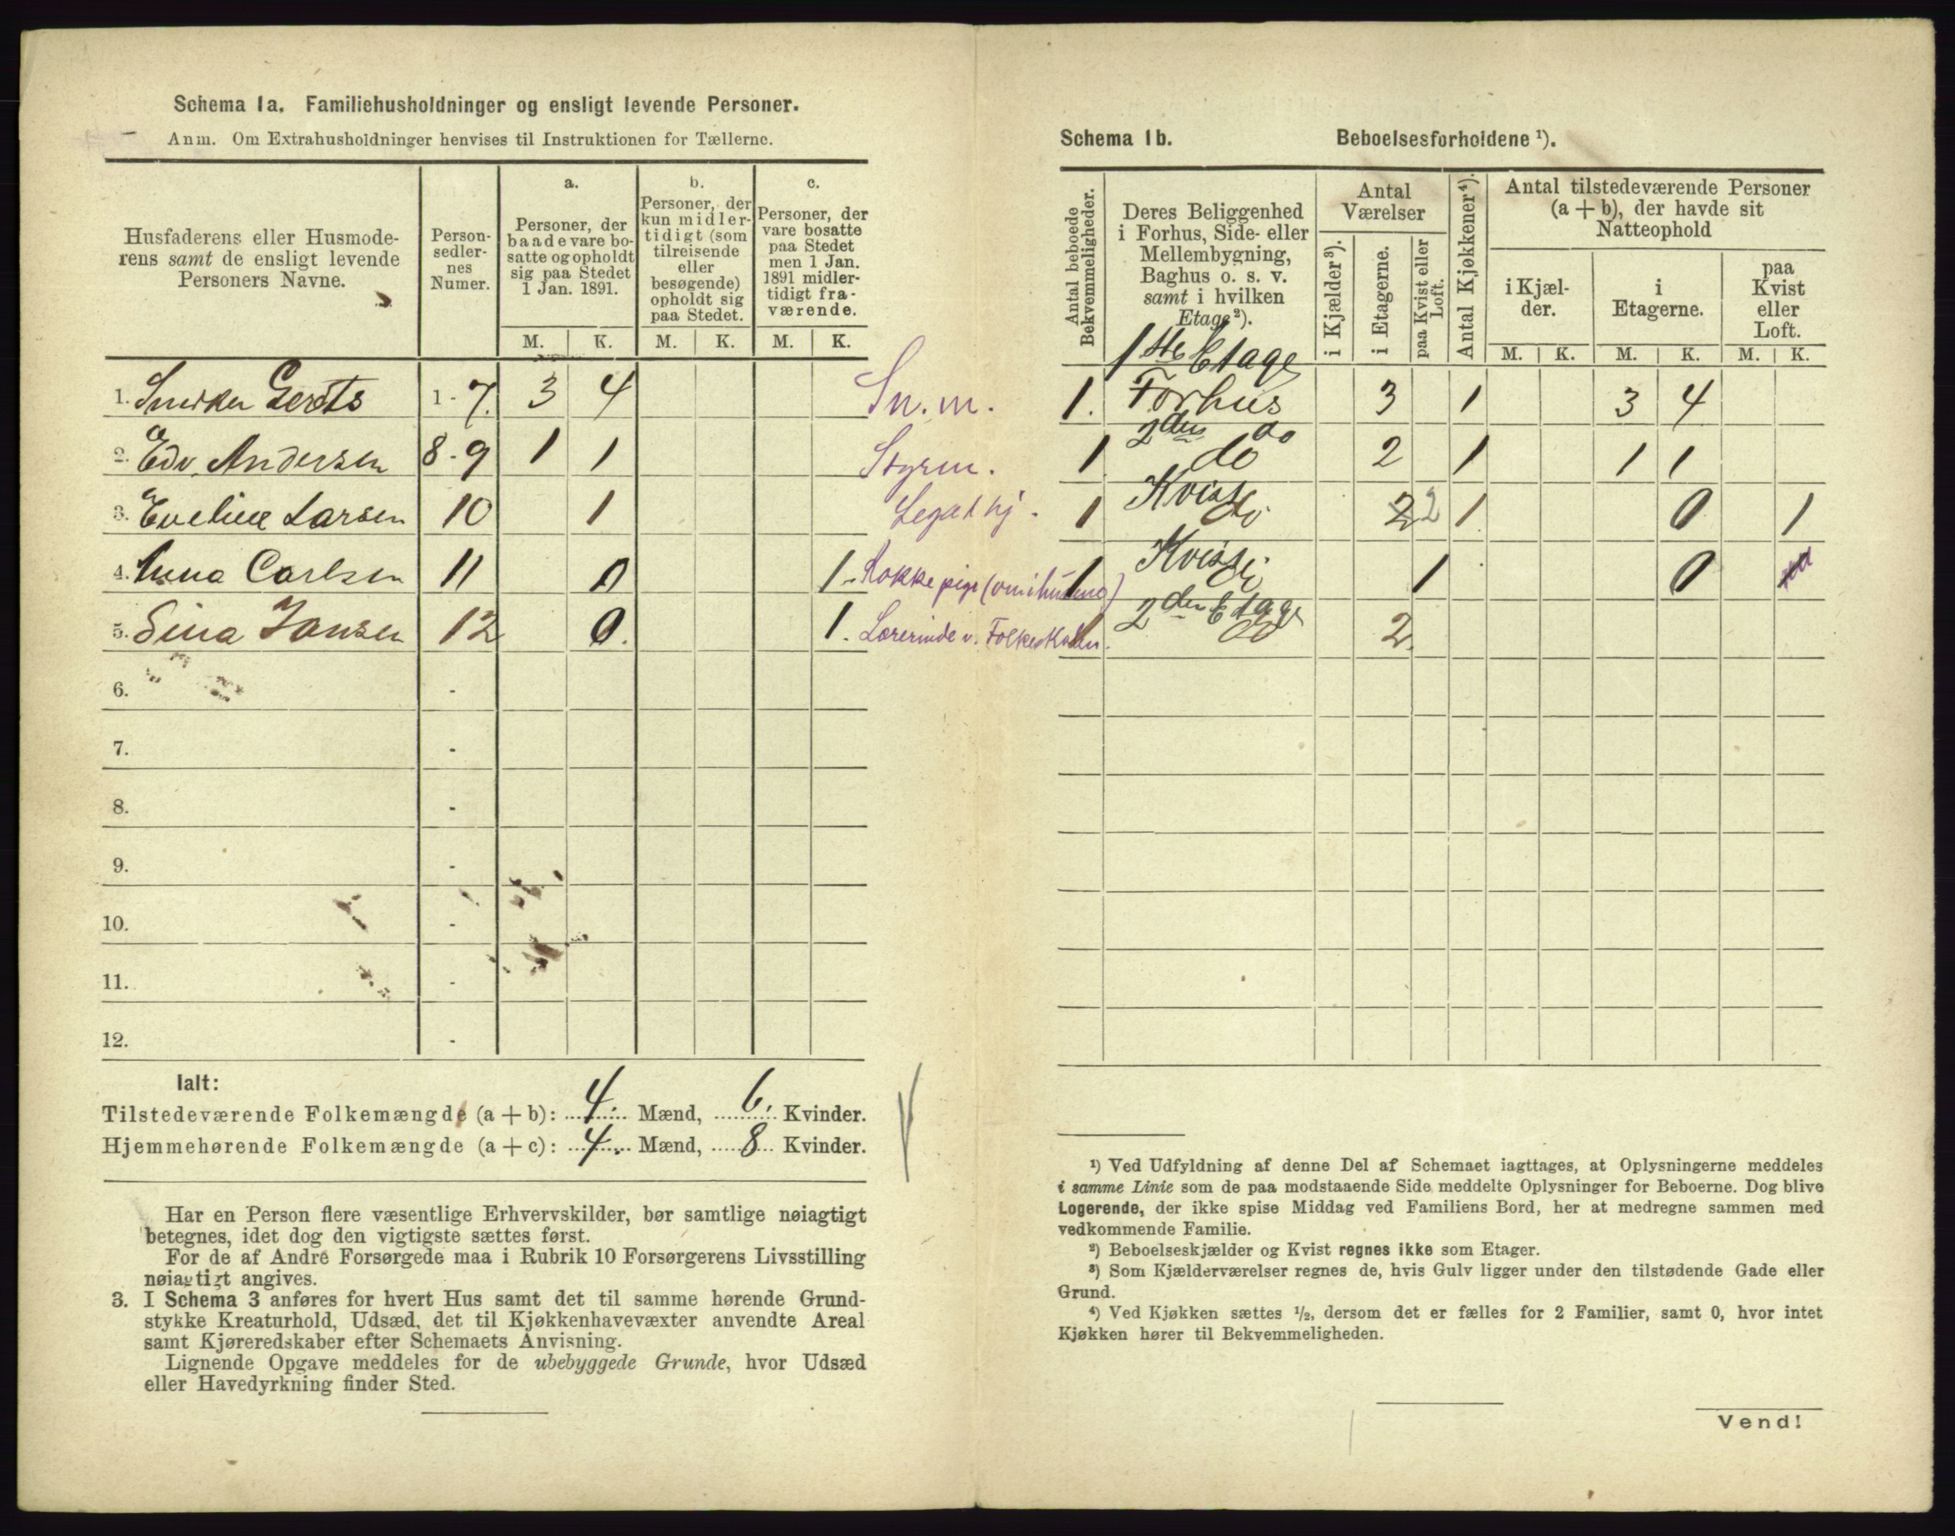 Schema 1a. Familiehusholdninger og ensligt levende Personer.
Anm. Om Extrahusholdninger henvises til Instruktionen for Tællerne.
Husfaderens eller Husmode-
rens samt de ensligt levende
Personers Navne.
Person-
sedler-
nes
Numer.
a.
Personer, der
baade vare bo-
satte og opholdt
sig paa Stedet
1 Jan. 1891.
b.
Personer, der
kun midler-
tidigt (som
tilreisende
eller
besøgende)
opholdt sig
paa Stedet.
c.
Personer, der
vare bosatte
paa Stedet
men 1 Jan.
1891 midler-
tidigt fra-
værende.
M. K. M. K. M. K.
1. Gerots 1 - 7. 3 4 Sn. m.
2. Edv. Andersen 8 - 9 1 1 Styrm.
3. Eveline Larsen 10 1 Legat hj.
4. Anna Carlsen 11 0 1. Kokkepige
5. Sina Jansen 12 0. 1. Lærerinde v. Folkeskolen.
6. -
7. -
8. -
9. -
10. -
11. -
12. -
Ialt:
Tilstedeværende Folkemængde (a + b): 4. Mænd, 6. Kvinder.
Hjemmehørende Folkemængde (a + c): 4. Mænd, 8 Kvinder.
Har en Person flere væsentlige Erhvervskilder, bør samtlige nøiagtigt
betegnes, idet dog den vigtigste sættes først.
For de af Andre Forsørgede maa i Rubrik 10 Forsørgerens Livsstilling
nøiagtigt angives.
3. I Schema 3 anføres for hvert Hus samt det til samme hørende Grund-
stykke Kreaturhold, Udsæd, det til Kjøkkenhavevæxter anvendte Areal
samt Kjøreredskaber efter Schemaets Anvisning.
Lignende Opgave meddeles for de ubebyggede Grunde, hvor Udsæd
eller Havedyrkning finder Sted.
Schema 1b. Beboelsesforholdene ¹).
Antal beboede
Bekvemmeligheder.
Deres Beliggenhed
i Forhus, Side- eller
Mellembygning,
Baghus o. s. v.
samt i hvilken
Etage²).
Antal
Værelser
i Kjælder³).
i Etagerne.
paa Kvist eller
Loft.
Antal Kjøkkener⁴).
Antal tilstedeværende Personer
(a + b), der havde sit
Natteophold
i Kjæl-
der.
i
Etagerne.
paa
Kvist
eller
Loft.
M. K. M. K. M. K.
1ste Etage
1. Forhus 3 1 3 4
2den do
1 do 2 1 1 1
Kvist
1 do 2 2 1 0 1
Kvist
1 do 1 0
2den Etage
1 do 2
¹) Ved Udfyldning af denne Del af Schemaet iagttages, at Oplysningerne meddeles
i samme Linie som de paa modstaaende Side meddelte Oplysninger for Beboerne. Dog blive
Logerende, der ikke spise Middag ved Familiens Bord, her at medregne sammen med
vedkommende Familie.
²) Beboelseskjælder og Kvist regnes ikke som Etager.
³) Som Kjælderværelser regnes de, hvis Gulv ligger under den tilstødende Gade eller
Grund.
⁴) Ved Kjøkken sættes ½, dersom det er fælles for 2 Familier, samt 0, hvor intet
Kjøkken hører til Bekvemmeligheden.
Vend!